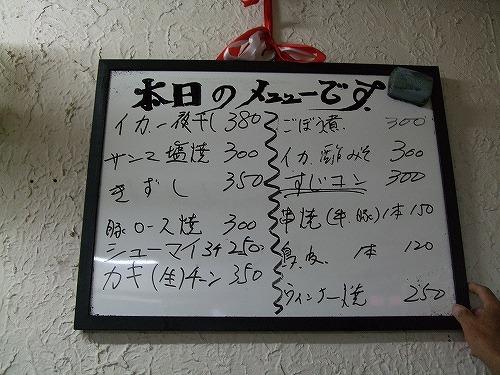 本日のメニューです
イカ一夜干し 380
サンマ塩焼 300
きずし 350
豚ロース焼 300
シューマイ3ケ 250
カキ(生)チーン 350
ごぼう煮 300
イカ酢みそ 300
すじコン 300
串焼(牛、豚)1本 150
鳥皮 1本 120
ウィンナー焼 250